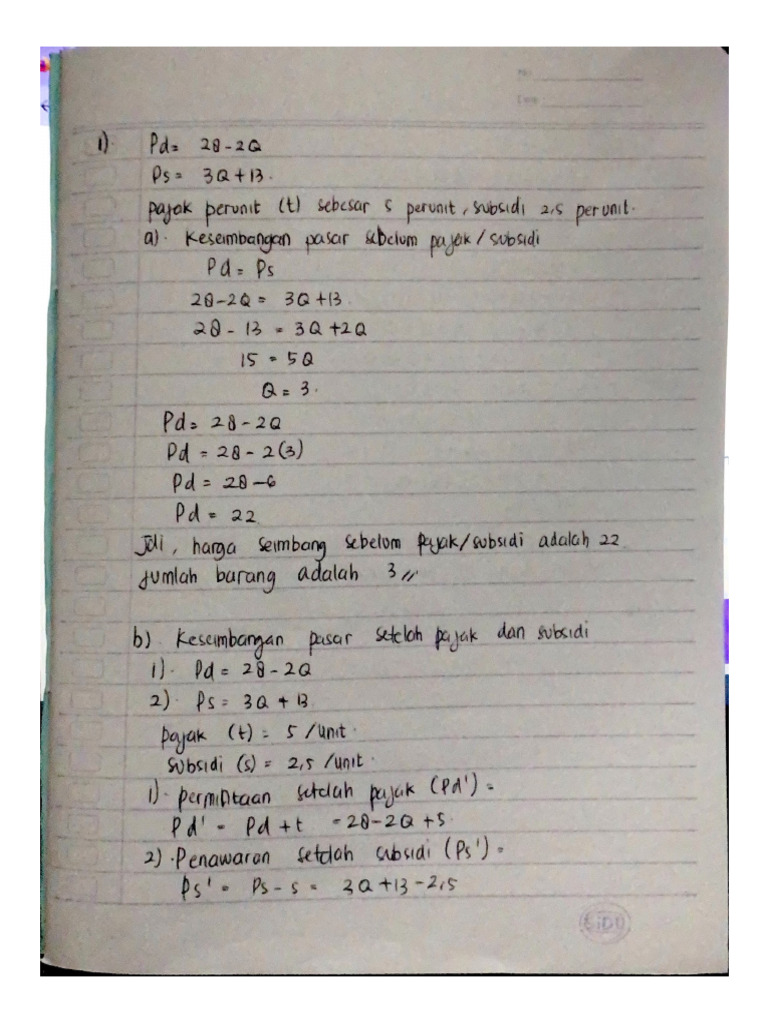 No
Date
1). Pd= 28-2Q
Ps= 3Q+13.
pajak perunit (t) sebesar 5 perunit, subsidi 2,5 per unit.
a). Keseimbangan pasar sebelum pajak/subsidi
Pd = Ps
28-2Q = 3Q+13.
28 - 13 = 3Q+2Q
15 = 5Q
Q = 3.
Pd = 28-2Q
Pd = 28 - 2(3)
Pd = 28-6
Pd = 22
Jdi, harga seimbang sebelum pajak/subsidi adalah 22
jumlah barang adalah 3 //
b). Keseimbangan pasar setelah pajak dan subsidi
1). Pd = 28-2Q
2). Ps = 3Q + 13
pajak (t) = 5 /unit.
subsidi (s) = 2,5 /unit.
1). permintaan setelah pajak (Pd') =
Pd' = Pd + t = 28-2Q+5.
2). Penawaran setelah subsidi (Ps') =
Ps' = Ps - s = 3Q+13-2,5
SiDU